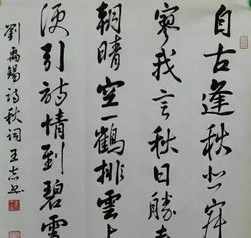 自古逢秋悲寂
寥我言秋日勝春
朝晴空一鶴排雲上
便引詩情到碧
劉禹錫詩秋詞 王志书